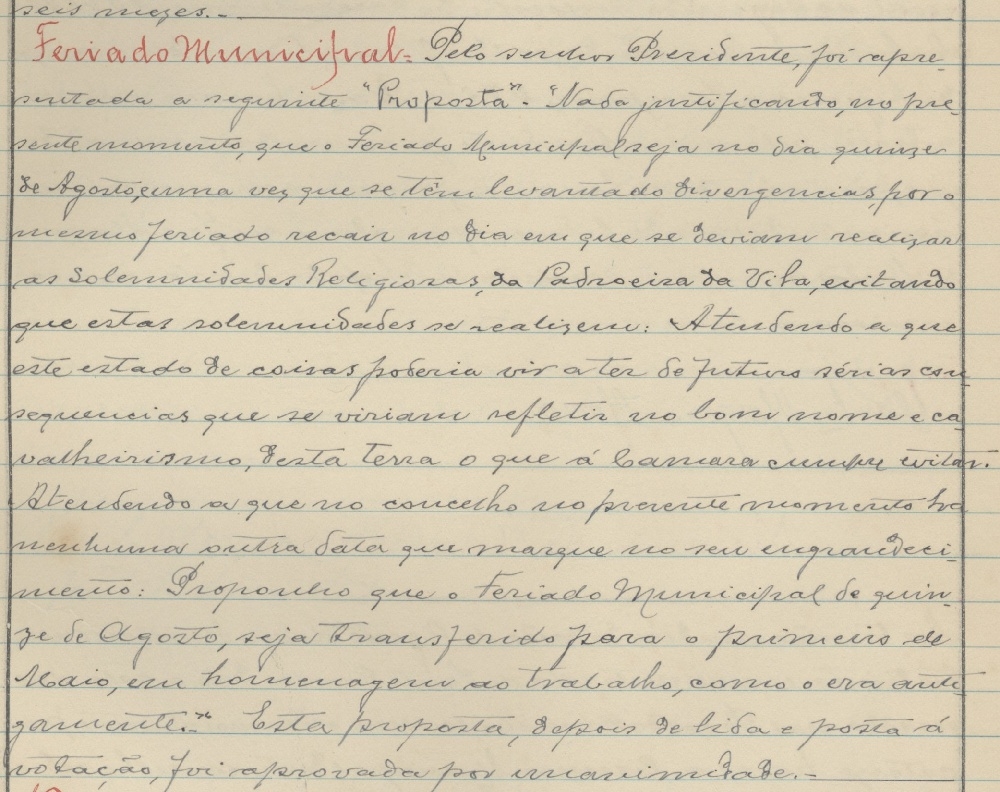 seis mezes.-
Feriado Municipal- Pelo senhor Presidente, foi apre-
sentada a seguinte "Proposta".- "Nada justificando, no pre-
sente momento, que o Feriado Municipal seja no dia quinze
de Agosto, uma vez que se têm levantado divergencias, por o
mesmo feriado recair no dia em que se deviam realizar
as Solemnidades Religiosas, da Padroeira da Vila, evitando
que estas solemnidades se realizem: Atendendo a que
este estado de coisas poderia vir a ter de futuro sérias con-
sequencias que se viriam refletir no bom nome e ca-
valheirismo, desta terra o que á Camara cumpre evitar.
Atendendo a que no concelho no presente momento ha
nenhuma outra data que marque no seu engrandeci-
mento: Proponho que o Feriado Municipal de quin-
ze de Agosto, seja transferido para o primeiro de
Maio, em homenagem ao trabalho, como o era anti-
gamente." Esta proposta, depois de lida e posta á
votação, foi aprovada por unanimidade.-